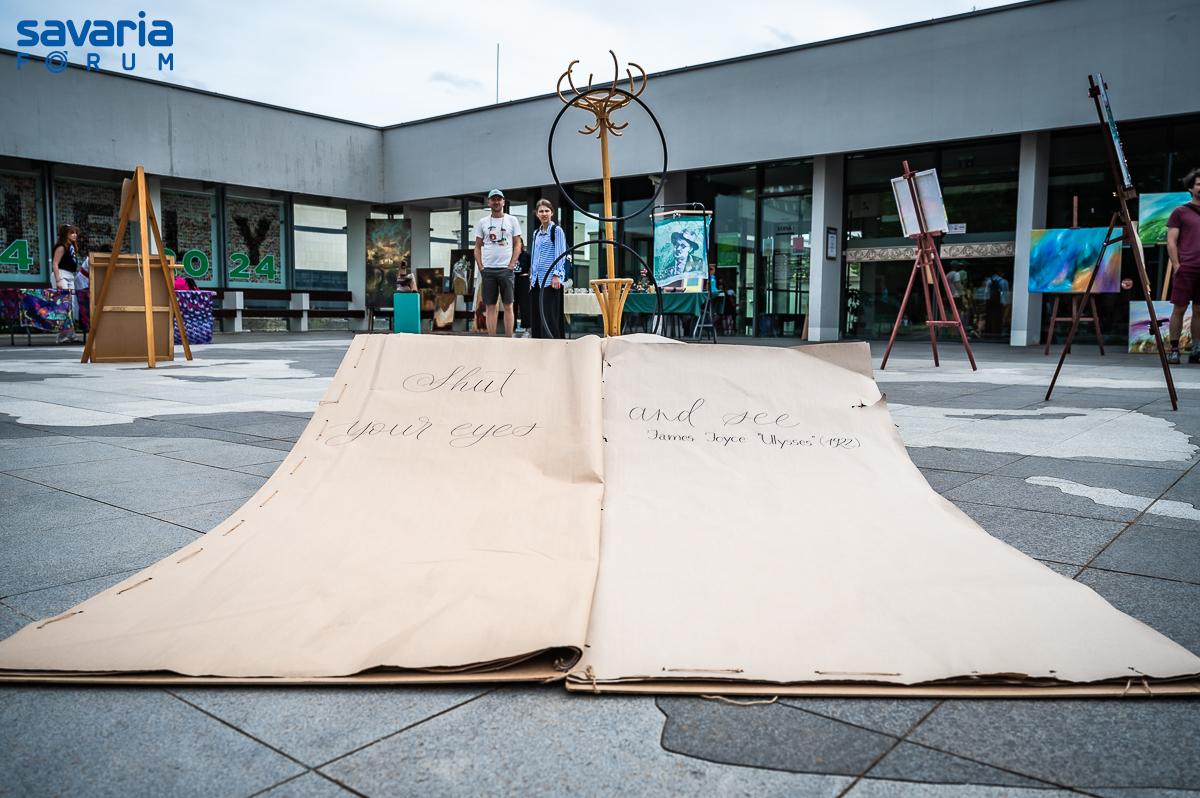 savaria
FÓRUM
4
0 24
Shut
your eyes
and see
James Joyce "Ulysses" (1922)